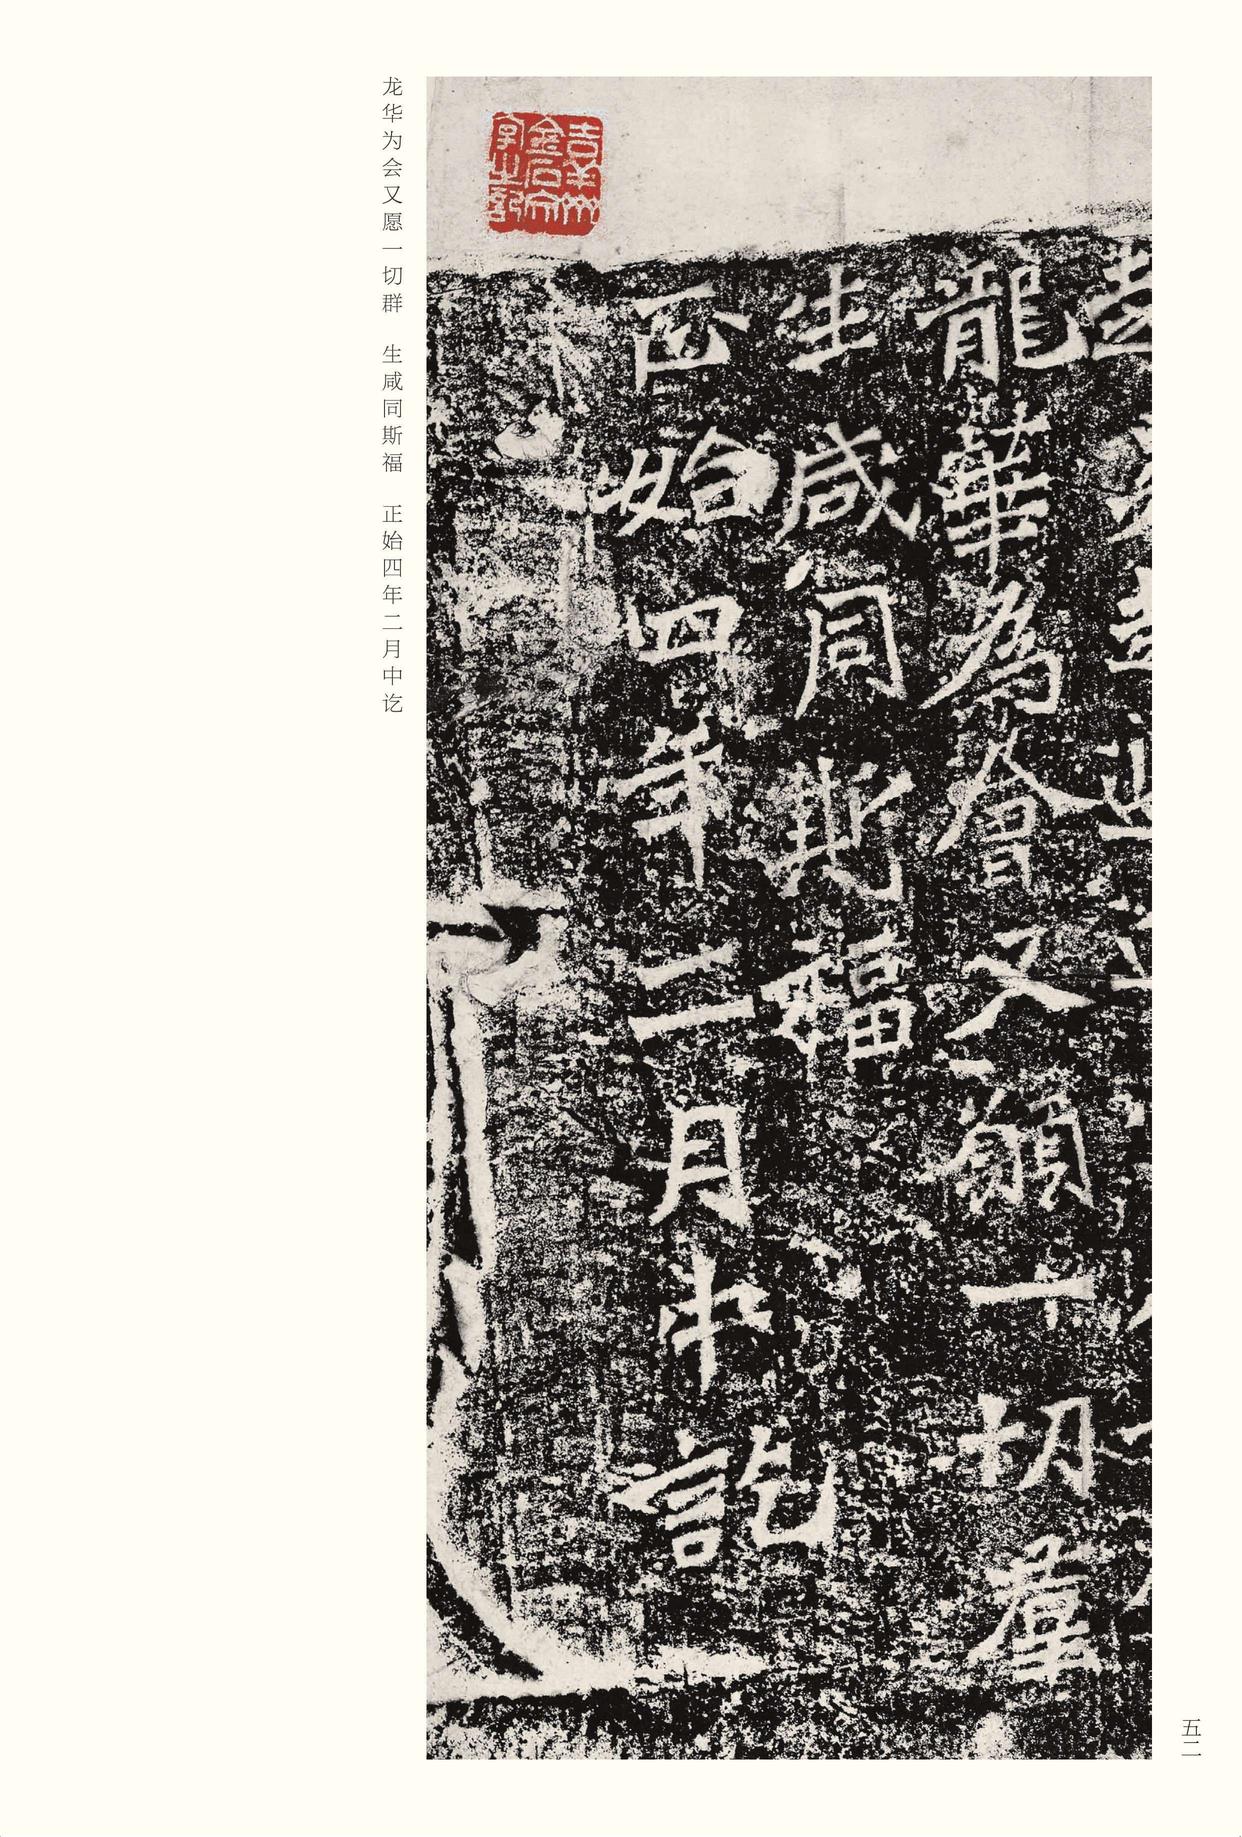 龍華為會又願一切群
生咸同斯福
正始四年二月中訖
龙华为会又愿一切群　生咸同斯福　正始四年二月中讫
五二